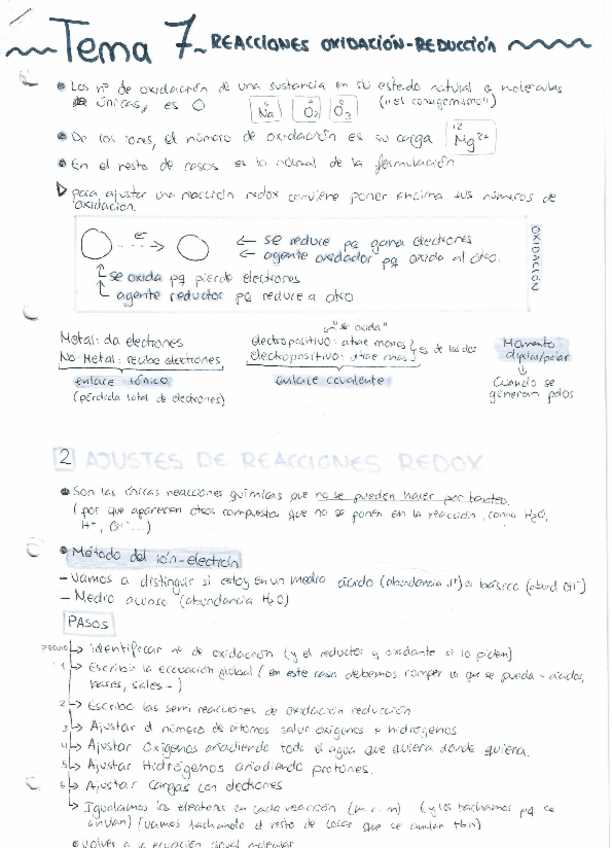 Tema 7 - REACCIONES OXIDACIÓN-REDUCCIÓN
• Los nº de oxidación de una sustancia en su estado natural o moléculas
únicas, es 0 Na O₂ O₃ ("el consigo mismo")
• De los iones, el número de oxidación es su carga +2 Mg²⁺
• En el resto de casos es lo normal de la formulación
▷ para ajustar una reacción redox conviene poner encima sus números de
oxidación.
e⁻
← se reduce pq gana electrones
← agente oxidador pq oxida al otro.
OXIDACIÓN
se oxida pq pierde electrones
agente reductor pq reduce a otro
"se oxida"
Metal: da electrones
No-Metal: recibe electrones
enlace iónico
(pérdida total de electrones)
electropositivo: atrae menos
electropositivo: atrae más
es de los dos
enlace covalente
Momento
dipolar/polar
Cuando se
generan polos
2 AJUSTES DE REACCIONES REDOX
• Son las únicas reacciones químicas que no se pueden hacer por tanteo.
(por que aparecen otros compuestos que no se ponen en la reacción, como H₂O,
H⁺, OH⁻...)
• Método del ión-electrón
- Vamos a distinguir si estoy en un medio ácido (abundancia H⁺) o básica (abund OH⁻)
- Medio acuoso (abundancia H₂O)
PASOS
PREVIO → identificar nº de oxidación (y el reductor y oxidante si lo piden)
1 → Escribir la ecuación global (en este caso debemos romper lo que se pueda - ácidos,
bases, sales -)
2 → Escribo las semi reacciones de oxidación reducción
3 → Ajustar el número de átomos salvo oxígenos e hidrógenos
4 → Ajustar Oxígenos añadiendo toda el agua que quiera donde quiera.
5 → Ajustar Hidrógenos añadiendo protones.
6 → Ajustar cargas con electrones
→ Igualamos los electrones en cada reacción (m.c.m) (y los tachamos pq se
anulan) (vamos tachando el resto de cosas que se anulan tbn)
volver a la ecuación global molecular